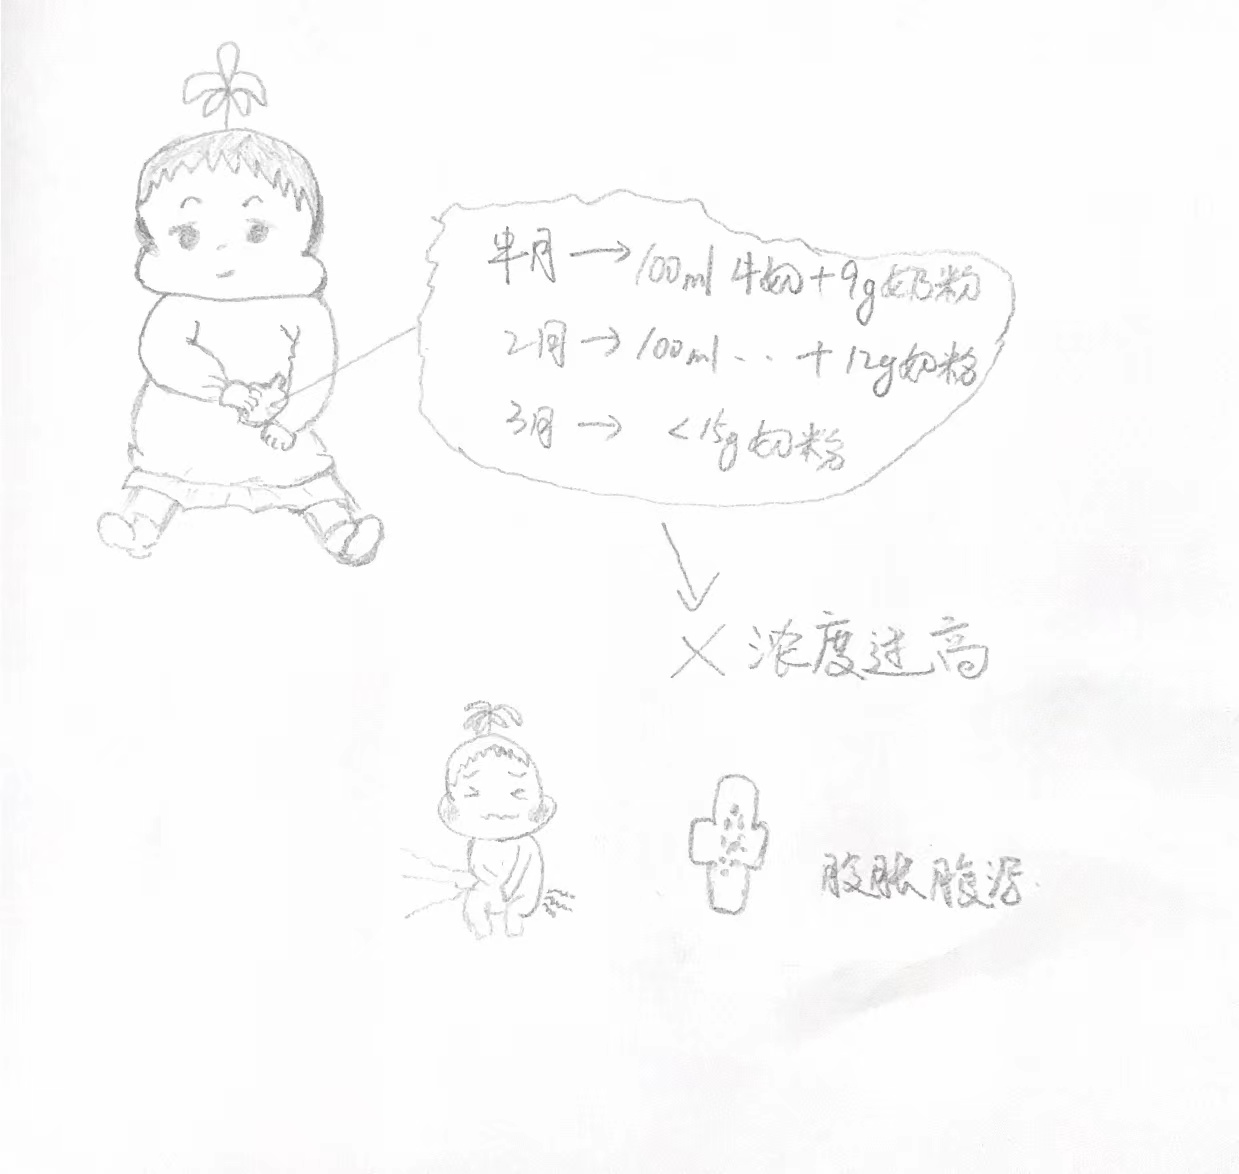 半月→100ml 牛奶+9g奶粉
2月→100ml ‥ +12g奶粉
3月→ <15g奶粉
×浓度过高
腹胀腹泻